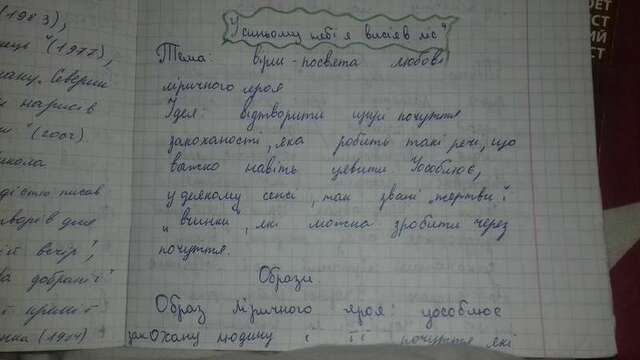 (1983),
"(1977),
Северин
нарисів
"(2004)
писав
творів для
вечір",
добраній
(1904)
"У синьому небі я висіяв ліс"
Тема: вірш-посвета любові
ліричного героя
Ідея: відтворити щирі почуття
закоханості, яка робить такі речі, що
важко навіть уявити Уособлює,
у деякому сенсі, так звані "жертви" і
"вчинки", які можна зробити через
почуття.
Образи
Образ ліричного героя: уособлює
закохану людину і її почуття які
ЕТ
СТ
ИЙ
СТ